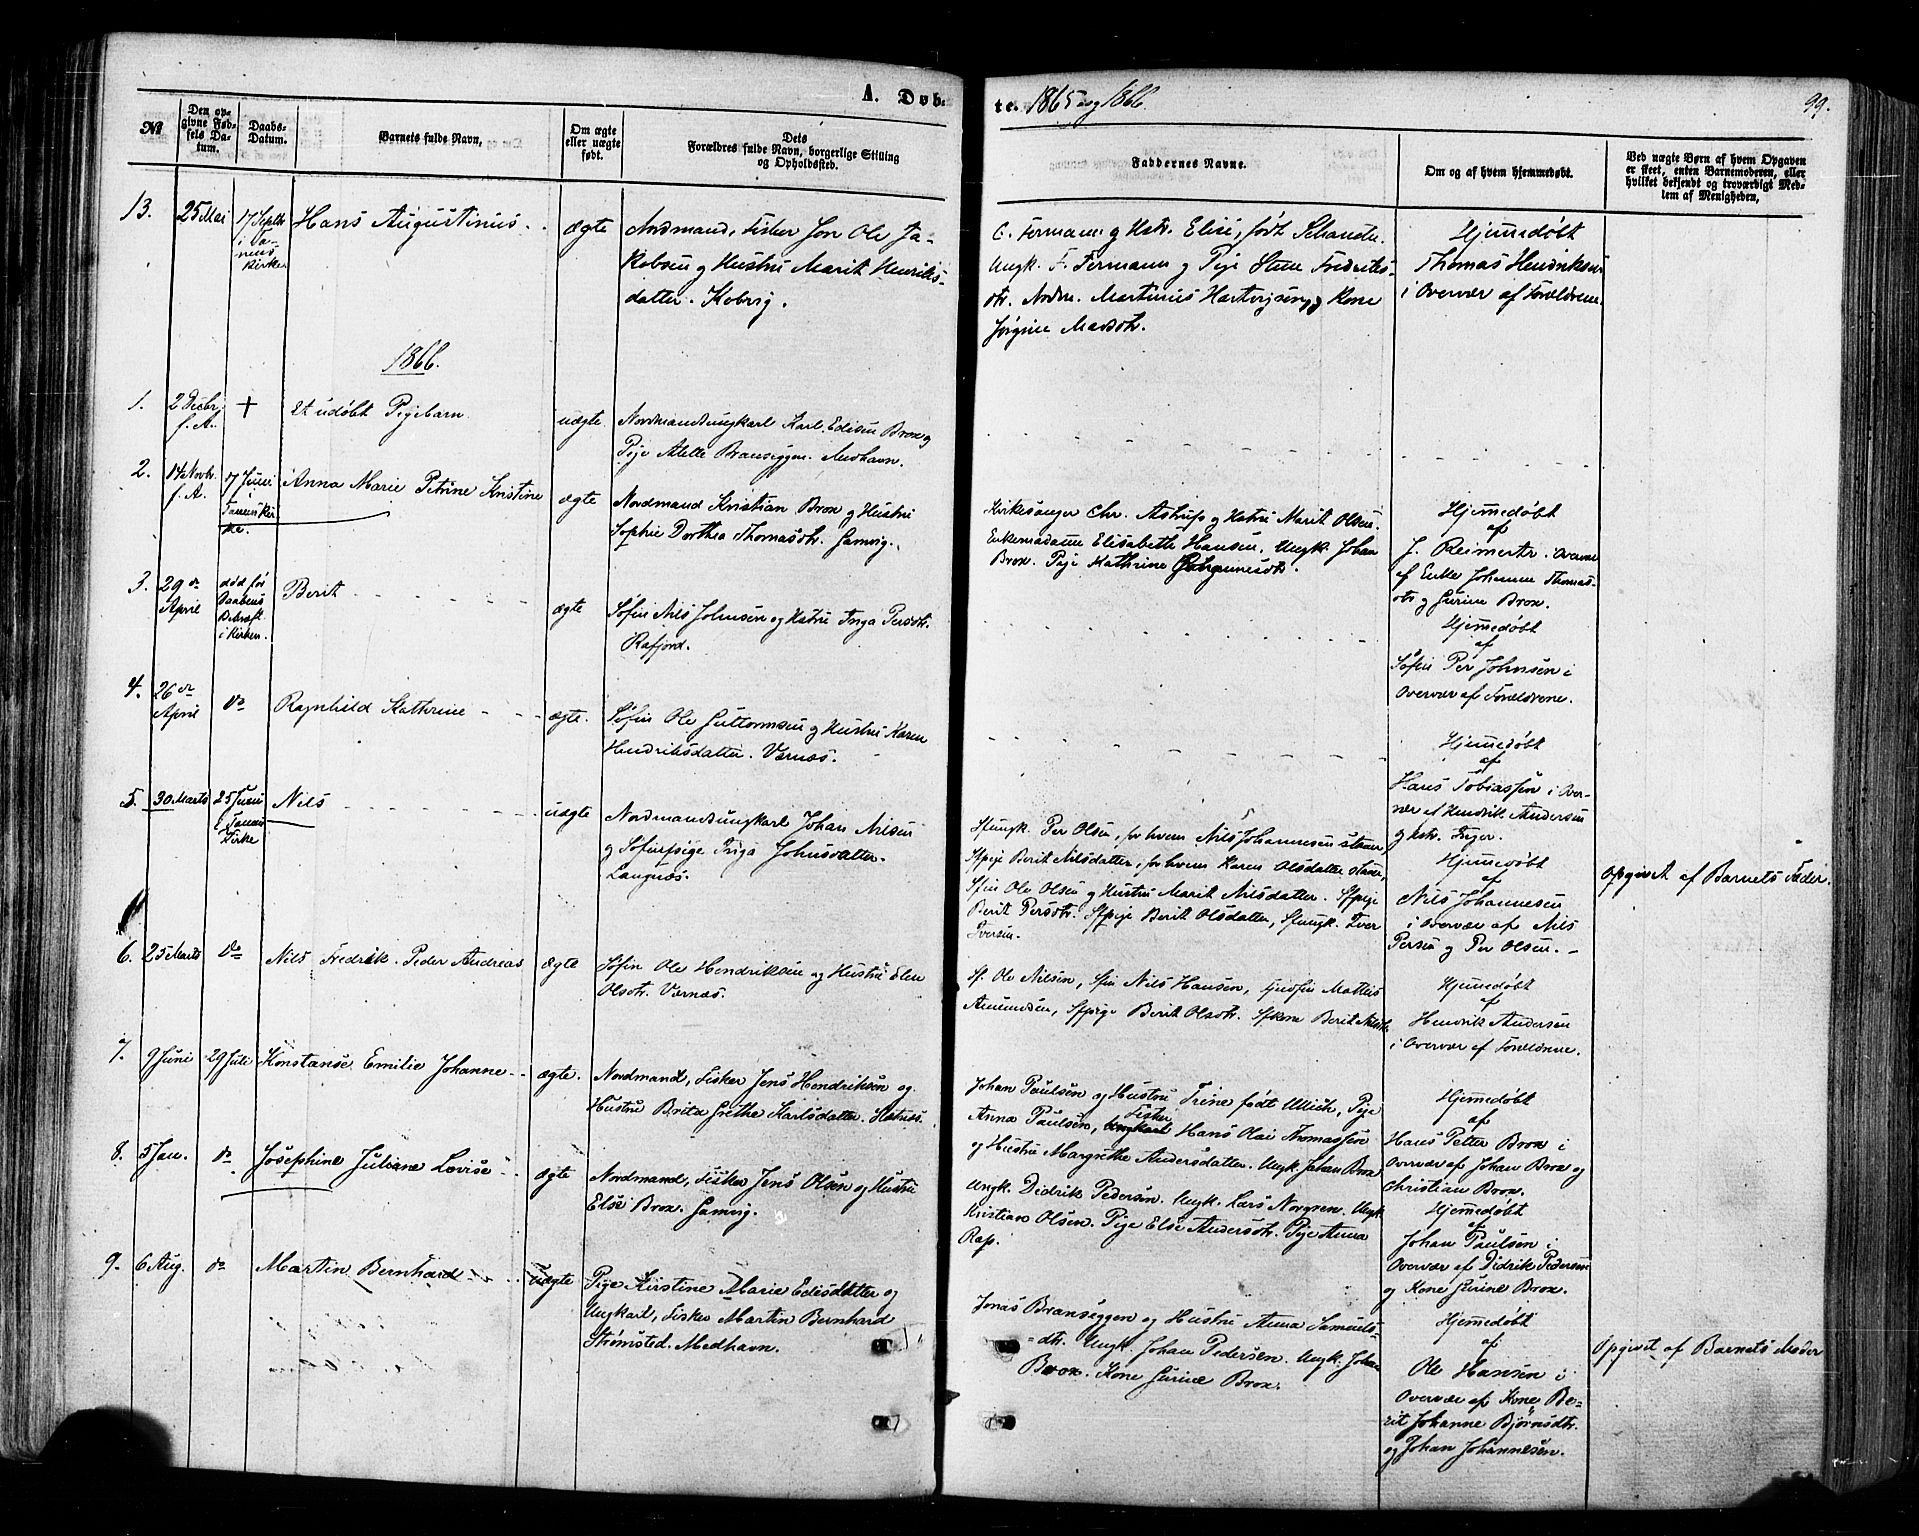 A. Døb-
te. 1865 og 1866.
99.
№
Den op-
givne Fød-
sels Da-
tum.
Daabs-
Datum.
Barnets fulde Navn,
Om ægte
eller uægte
født.
Dets
Forældres fulde Navn, borgerlige Stilling
og Opholdssted.
Faddernes Navne.
Om og af hvem hjemmedøbt.
Ved uægte Børn af hvem Opgaven
er skeet, enten Barnemoderen, eller
hvilket bekjendt og troværdigt Med-
lem af Menigheden,
13.
25 Mai
17 Septbr
i Ta-
nens
Kirke
Hans Augustinus
ægte
Nordmand, Fisker Jon Ole Ja-
kobsen og Hustru Marit Henriks-
datter. Kobvig.
C. Fermann og Hstr. Elise, født Schanche.
Ungk. F. Fermann og Pige Stine Fredriks-
dtr. Nordm. Martinus Hartvigsen og Kone
Jørgine Masdtr.
Hjemedøbt
Thomas Hendriksen
i Overvær af Forældrene.
1866.
1.
2 Decbr.
f. A.
+
Et udøbt Pigebarn
uægte.
Nordmandsungkarl Karl Edisen Brox og
Pige Alette Branseggen. Medhavn.
2.
14 Novbr.
f. A.
17 Juni
i
Tanens Kir-
ke.
Anna Marie Petrine Kristine
ægte
Nordmand Kristian Brox og Hustru
Sophie Dorthea Thomasdtr. Gamvig.
Kirkesanger Chr. Astrup og Hstru Marit Olsen.
Enkemadame Elisabeth Hansen. Ungk. Johan
Brox. Pige Kathrine Johannesdtr.
Hjemedøbt
af
J. Reimertz. Overvær
af Enke Johanne Thomas-
dtr og Gurine Brox.
3.
29de
April
død før
Daabens
Bekræft.
i Kirken.
Berit
ægte
Søfin Nils Johnsen og Hstru Inga Persdtr.
Rafjord.
Hjemedøbt
af
Søfin Per Johnsen i
Overvær af Forældrene.
4.
26de
April
do
Ragnhild Kathrine
ægte.
Søfin Ole Guttormsen og Hustru Karen
Hendriksdatter. Værnæs.
Hjemedøbt
af
Hans Tobiassen i Over-
vær af Hendrik Andersen
og Hstr. Inger.
5.
30 Marts
25 Juni
i Tanens
Kirke
Nils
uægte
Nordmandsungkarl Johan Nilsen
og Søfinpige Inga Johnsdatter.
Langnæs.
Sfungk. Per Olsen, for hvem Nils Johannesen staaer,
Sfpige Berit Nilsdatter, for hvem Karen Olsdatter staaer,
Sfin Ole Olsen og Hustru Marit Nilsdatter. Sfpige
Berit Persdtr. Sfpige Berit Olsdatter, Sfungk. Iver
Iversen.
Hjemedøbt
af
Nils Johannesen
i Overvær af Nils
Persen og Per Olsen.
Opgivet af Barnets Fader.
6.
25 Marts
do
Nils Fredrik Peder Andreas
ægte
Søfin Ole Hendriksen og Hustru Elen
Olsdtr. Værnæs.
Sf. Ole Nilsen, Sfin Nils Hansen, Gjedfin Mathis
Amundsen, Sfpige Berit Olsdtr. Sfkone Berit Nilsdtr.
Hjemedøbt
af
Hendrik Andersen
i Overvær af Forældrene.
7.
9 Juni
29 Juli
Konstanse Emilie Johanne
ægte.
Nordmand, Fisker Jens Hendriksen og
Hustru Brita Grethe Karlsdatter. Statnæs.
Johan Paulsen og Hustru Trine født Ullich, Pige
Anna Paulsen, Fisker Hans Olai Thomassen
og Hustru Margrethe Andersdatter. Ungk. Johan Brox
Hjemedøbt
af
Hans Petter Brox i
Overvær af Johan Brox og
Christian Brox.
8.
5 Jan.
do
Josephine Juliane Lovise
ægte
Nordmand, Fisker Jens Olsen og Hustru
Else Brox. Gamvig.
Ungk. Didrik Pedersen. Ungk. Lars Norgren. Ungk.
Kristian Olsen. Pige Else Andersdtr. Pige Anna
Rap.
Hjemedøbt
af
Johan Paulsen i
Overvær af Didrik Pedersen
og Kone Gurine Brox.
9.
6 Aug.
do
Martin Bernhard
uægte
Pige Kirstine Marie Edisdatter og
Ungkarl, Fisker Martin Bernhard
Strømsted. Medhavn.
Jonas Branseggen og Hustru Anna Samuels-
dtr. Ungk. Johan Pedersen. Ungk. Johan
Brox. Kone Gurine Brox.
Hjemedøbt
af
Ole Hansen i
Overvær af Kone Be-
rit Johanne Bjørnsdtr.
og Johan Johannesen.
Opgivet af Barnets Moder